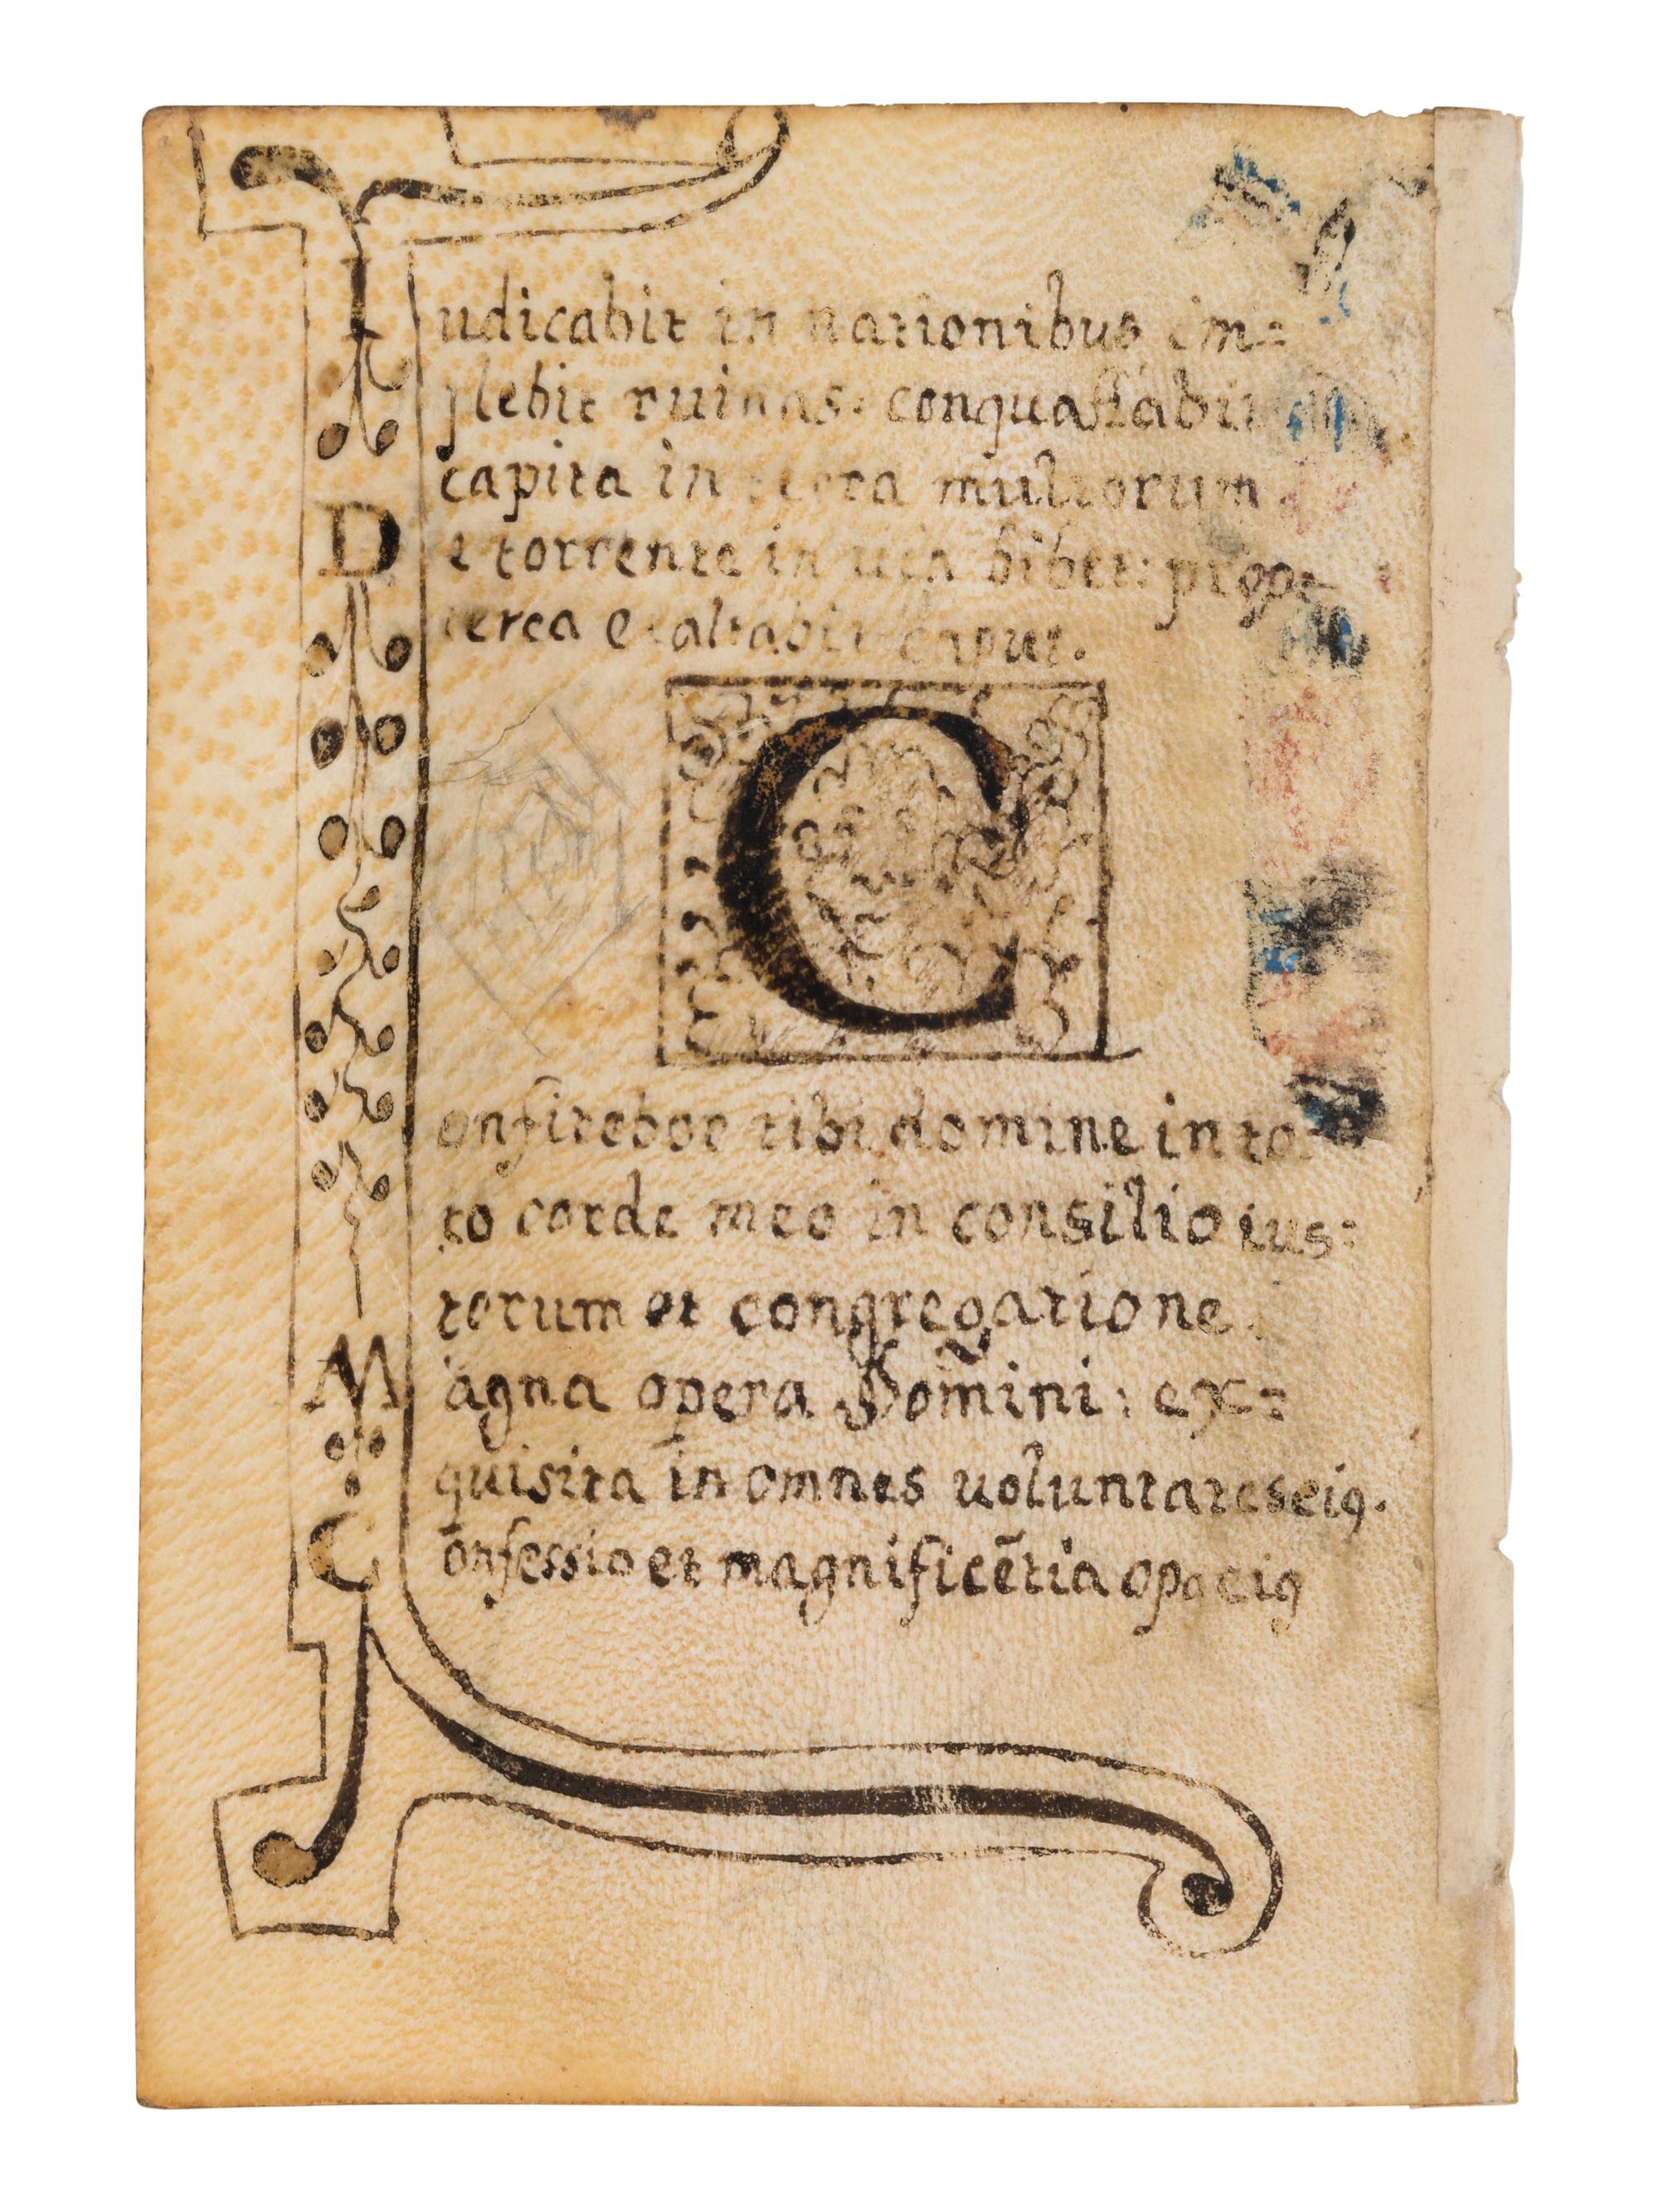 Iudicabit in nationibus im=
plebit ruinas: conquassabit
capita in terra multorum.
De torrente in uia bibet: prop=
terea exaltabit caput.
Confitebor tibi domine in to=
to corde meo in consilio ius=
torum et congregatione.
Magna opera Domini: ex=
quisita in omnes uoluntates eiꝰ.
Cōnfessio et magnificētia opꝰ eiꝰ